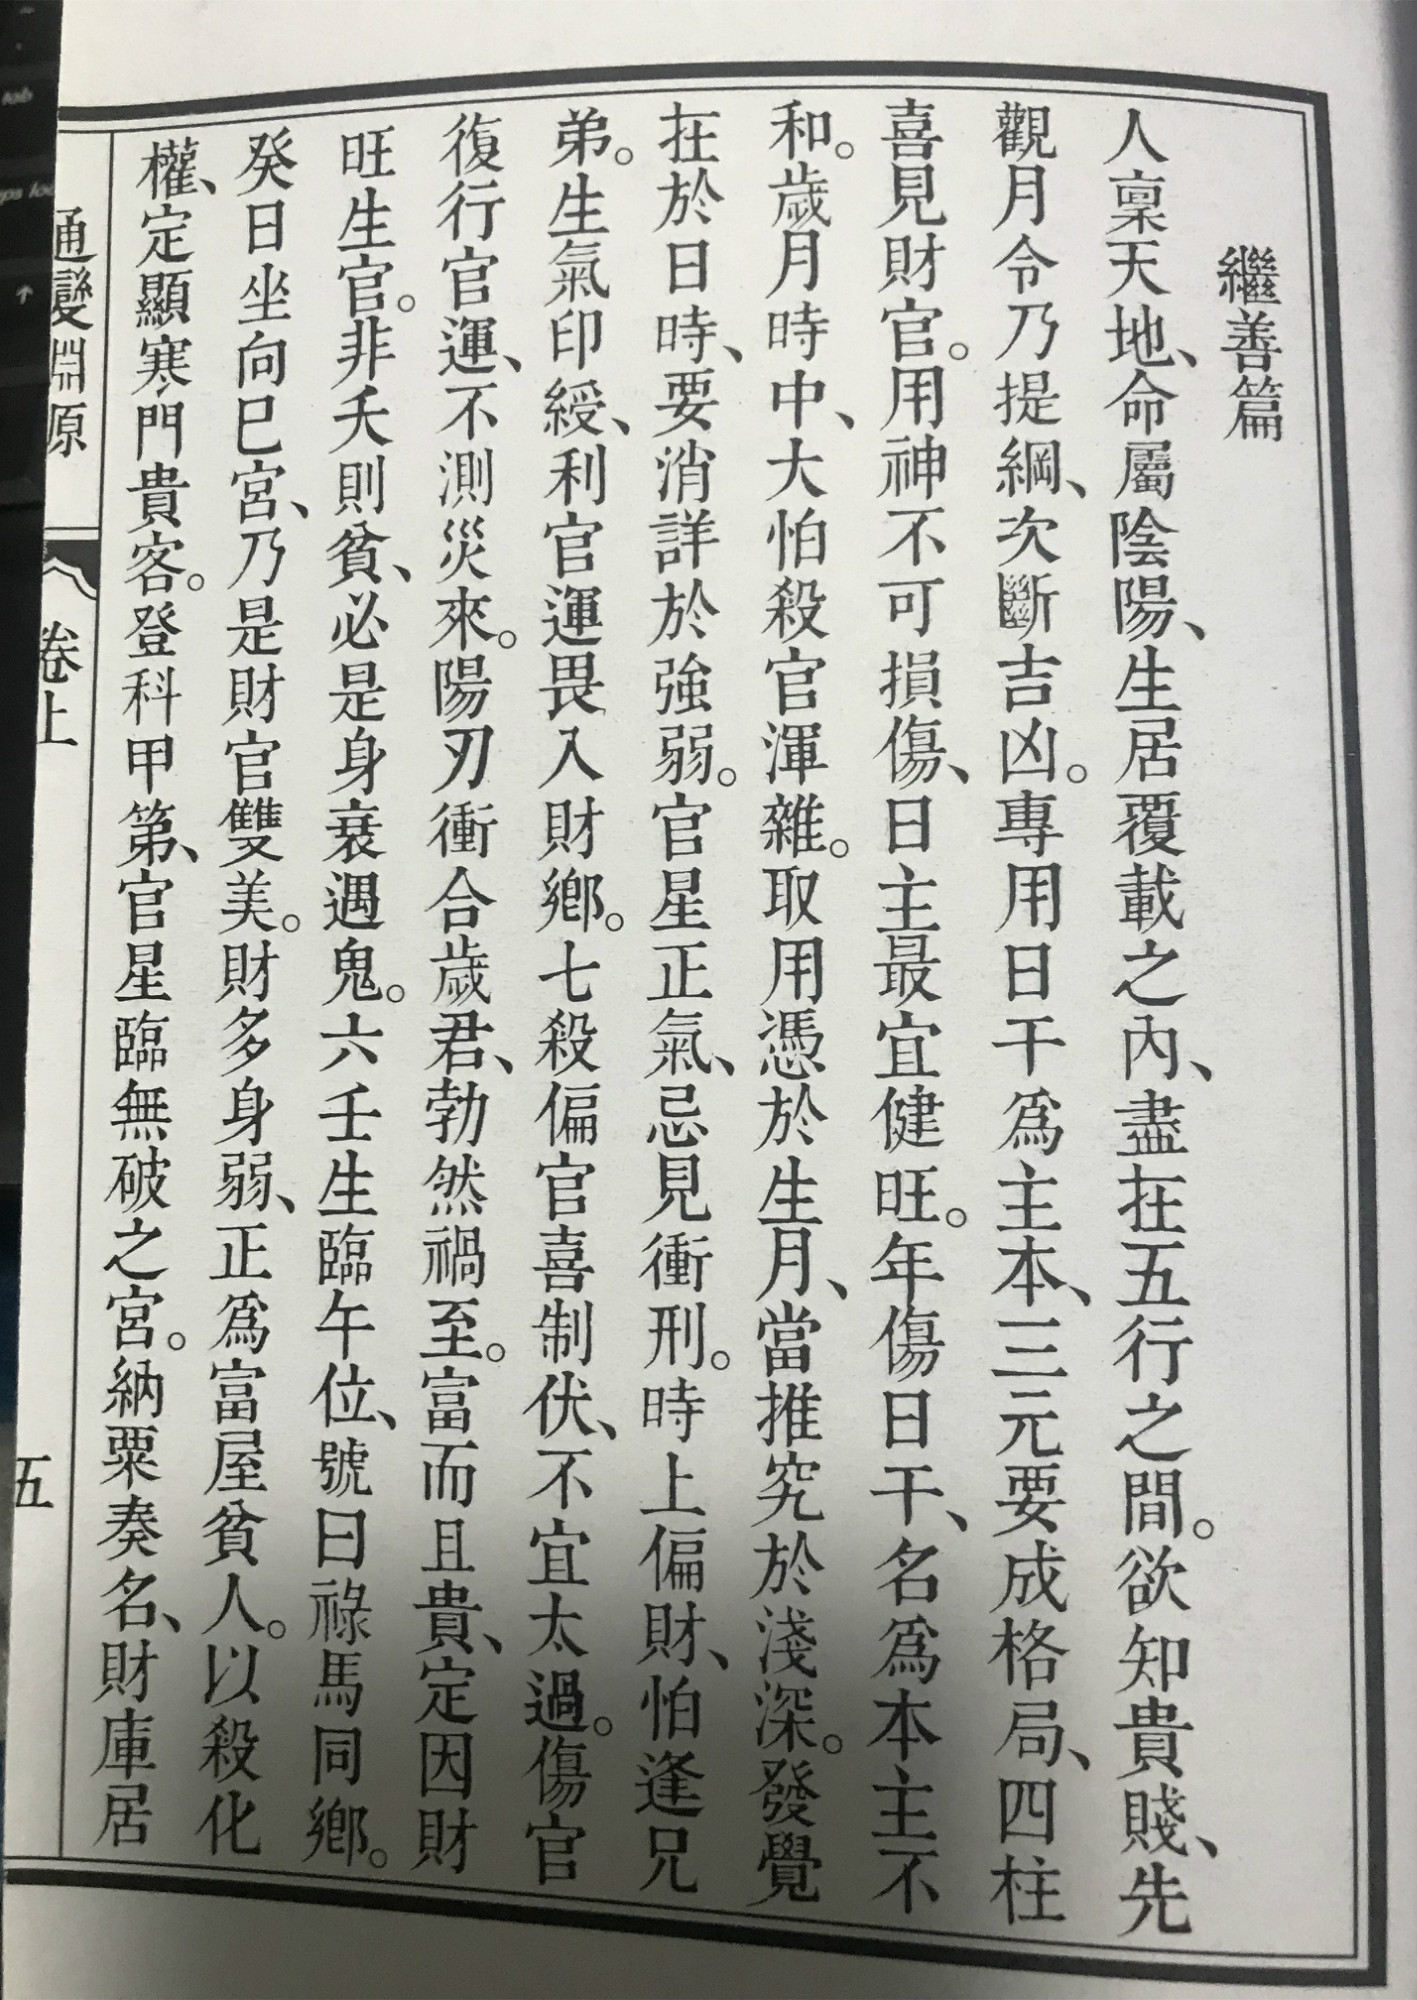 繼善篇
人稟天地、命屬陰陽、生居覆載之內、盡在五行之間。欲知貴賤、先
觀月令乃提綱、次斷吉凶。專用日干為主本、三元要成格局、四柱
喜見財官。用神不可損傷、日主最宜健旺。年傷日干、名為本主不
和。歲月時中、大怕殺官渾雜。取用憑於生月、當推究於淺深。發覺
在於日時、要消詳於強弱。官星正氣、忌見衝刑。時上偏財、怕逢兄
弟。生氣印綬、利官運畏入財鄉。七殺偏官喜制伏、不宜太過。傷官
復行官運、不測災來。陽刃衝合歲君、勃然禍至。富而且貴、定因財
旺生官。非夭則貧、必是身衰遇鬼。六壬生臨午位、號曰祿馬同鄉。
癸日坐向巳宮、乃是財官雙美。財多身弱、正為富屋貧人。以殺化
權、定顯寒門貴客。登科甲第、官星臨無破之宮。納粟奏名、財庫居
通變淵原 卷上 五